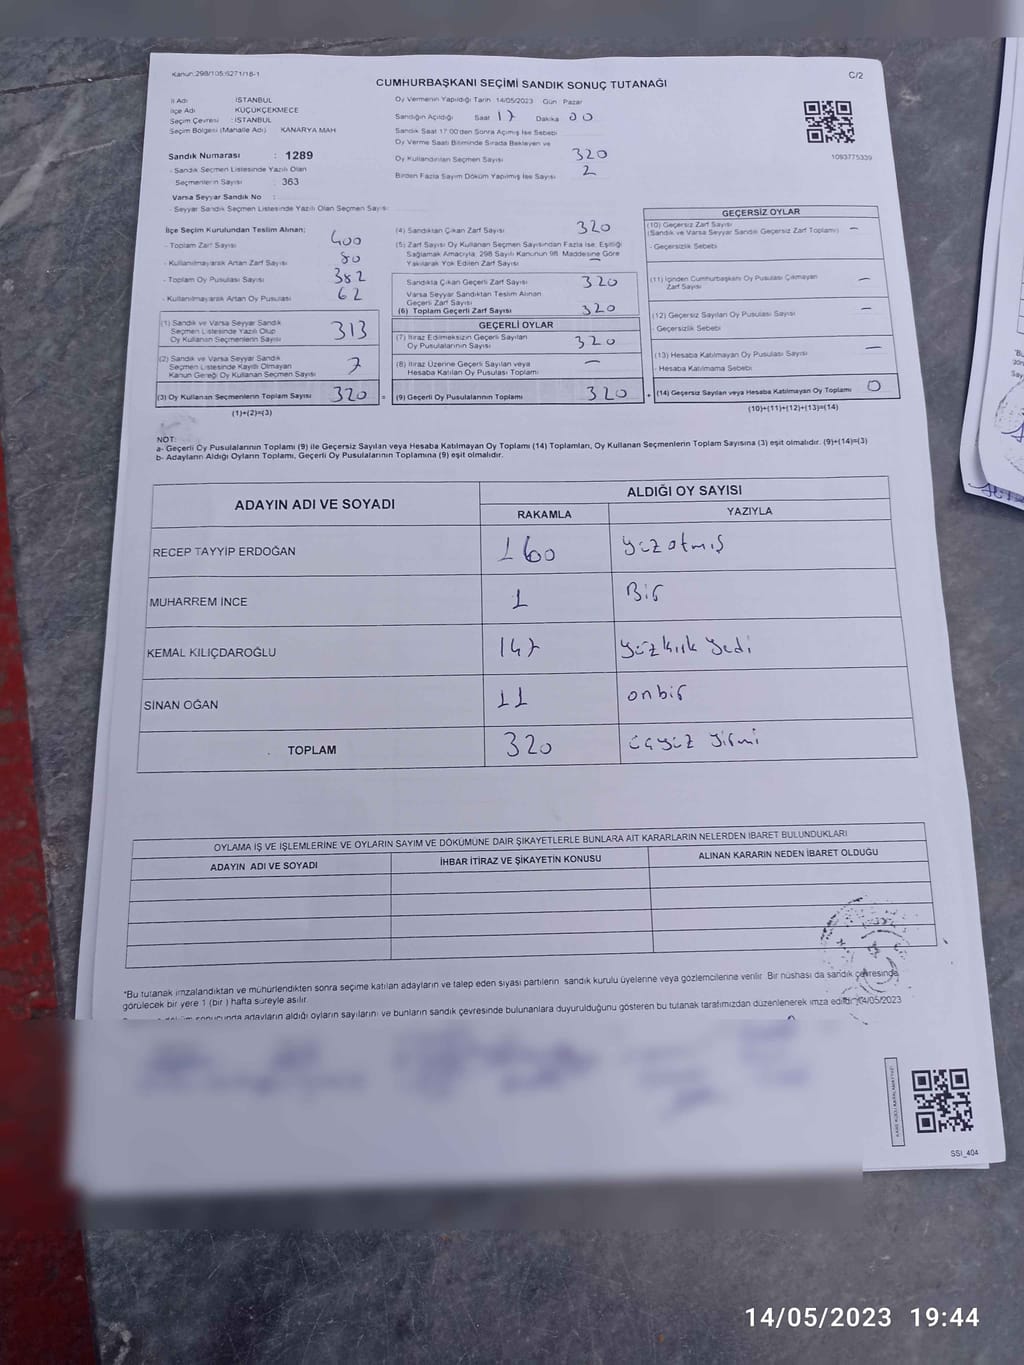 Kanun:298/105;6271/18-1
C/2
CUMHURBAŞKANI SEÇİMİ SANDIK SONUÇ TUTANAĞI
İl Adı : İSTANBUL
İlçe Adı : KÜÇÜKÇEKMECE
Seçim Çevresi : İSTANBUL
Seçim Bölgesi (Mahalle Adı) KANARYA MAH
Sandık Numarası : 1289
- Sandık Seçmen Listesinde Yazılı Olan
Seçmenlerin Sayısı : 363
Varsa Seyyar Sandık No :
- Seyyar Sandık Seçmen Listesinde Yazılı Olan Seçmen Sayısı
Oy Vermenin Yapıldığı Tarih 14/05/2023 Gün Pazar
Sandığın Açıldığı Saat 17 Dakika 00
Sandık Saat 17:00'den Sonra Açılmış İse Sebebi
Oy Verme Saati Bitiminde Sırada Bekleyen ve
Oy Kullandırılan Seçmen Sayısı 320
Birden Fazla Sayım Döküm Yapılmış İse Sayısı 2
1093775339
İlçe Seçim Kurulundan Teslim Alınan;
- Toplam Zarf Sayısı 400
- Kullanılmayarak Artan Zarf Sayısı 80
- Toplam Oy Pusulası Sayısı 382
- Kullanılmayarak Artan Oy Pusulası 62
(1) Sandık ve Varsa Seyyar Sandık
Seçmen Listesinde Yazılı Olup
Oy Kullanan Seçmenlerin Sayısı 313
(2) Sandık ve Varsa Seyyar Sandık
Seçmen Listesinde Kayıtlı Olmayan
Kanun Gereği Oy Kullanan Seçmen Sayısı 7
(3) Oy Kullanan Seçmenlerin Toplam Sayısı 320 =
(1)+(2)=(3)
(4) Sandıktan Çıkan Zarf Sayısı 320
(5) Zarf Sayısı Oy Kullanan Seçmen Sayısından Fazla İse; Eşitliği
Sağlamak Amacıyla; 298 Sayılı Kanunun 98. Maddesine Göre
Yakılarak Yok Edilen Zarf Sayısı –
Sandıkta Çıkan Geçerli Zarf Sayısı 320
Varsa Seyyar Sandıktan Teslim Alınan
Geçerli Zarf Sayısı
(6) Toplam Geçerli Zarf Sayısı 320
GEÇERLİ OYLAR
(7) İtiraz Edilmeksizin Geçerli Sayılan
Oy Pusulalarının Sayısı 320
(8) İtiraz Üzerine Geçerli Sayılan veya
Hesaba Katılan Oy Pusulası Toplamı –
(9) Geçerli Oy Pusulalarının Toplamı 320 +
GEÇERSİZ OYLAR
(10) Geçersiz Zarf Sayısı
(Sandık ve Varsa Seyyar Sandık Geçersiz Zarf Toplamı) –
- Geçersizlik Sebebi
(11) İçinden Cumhurbaşkanı Oy Pusulası Çıkmayan
Zarf Sayısı –
(12) Geçersiz Sayılan Oy Pusulası Sayısı –
- Geçersizlik Sebebi
(13) Hesaba Katılmayan Oy Pusulası Sayısı –
- Hesaba Katılmama Sebebi
(14) Geçersiz Sayılan veya Hesaba Katılmayan Oy Toplamı 0
(10)+(11)+(12)+(13)=(14)
NOT:
a- Geçerli Oy Pusulalarının Toplamı (9) ile Geçersiz Sayılan veya Hesaba Katılmayan Oy Toplamı (14) Toplamları, Oy Kullanan Seçmenlerin Toplam Sayısına (3) eşit olmalıdır. (9)+(14)=(3)
b- Adayların Aldığı Oyların Toplamı, Geçerli Oy Pusulalarının Toplamına (9) eşit olmalıdır.
ADAYIN ADI VE SOYADI
ALDIĞI OY SAYISI
RAKAMLA YAZIYLA
RECEP TAYYİP ERDOĞAN 160 yüz atmış
MUHARREM İNCE 1 Bir
KEMAL KILIÇDAROĞLU 147 yüzkırk yedi
SİNAN OĞAN 11 onbir
TOPLAM 320 üçyüz yirmi
OYLAMA İŞ VE İŞLEMLERİNE VE OYLARIN SAYIM VE DÖKÜMÜNE DAİR ŞİKAYETLERLE BUNLARA AİT KARARLARIN NELERDEN İBARET BULUNDUKLARI
ADAYIN ADI VE SOYADI İHBAR İTİRAZ VE ŞİKAYETİN KONUSU ALINAN KARARIN NEDEN İBARET OLDUĞU
"Bu tutanak imzalandıktan ve mühürlendikten sonra seçime katılan adayların ve talep eden siyasi partilerin sandık kurulu üyelerine veya gözlemcilerine verilir. Bir nüshası da sandık çevresinde
görülecek bir yere 1 (bir) hafta süreyle asılır.
sonucunda adayların aldığı oyların sayılarını ve bunların sandık çevresinde bulunanlara duyurulduğunu gösteren bu tutanak tarafımızdan düzenlenerek imza edildi. 14/05/2023
SSI_404
14/05/2023 19:44